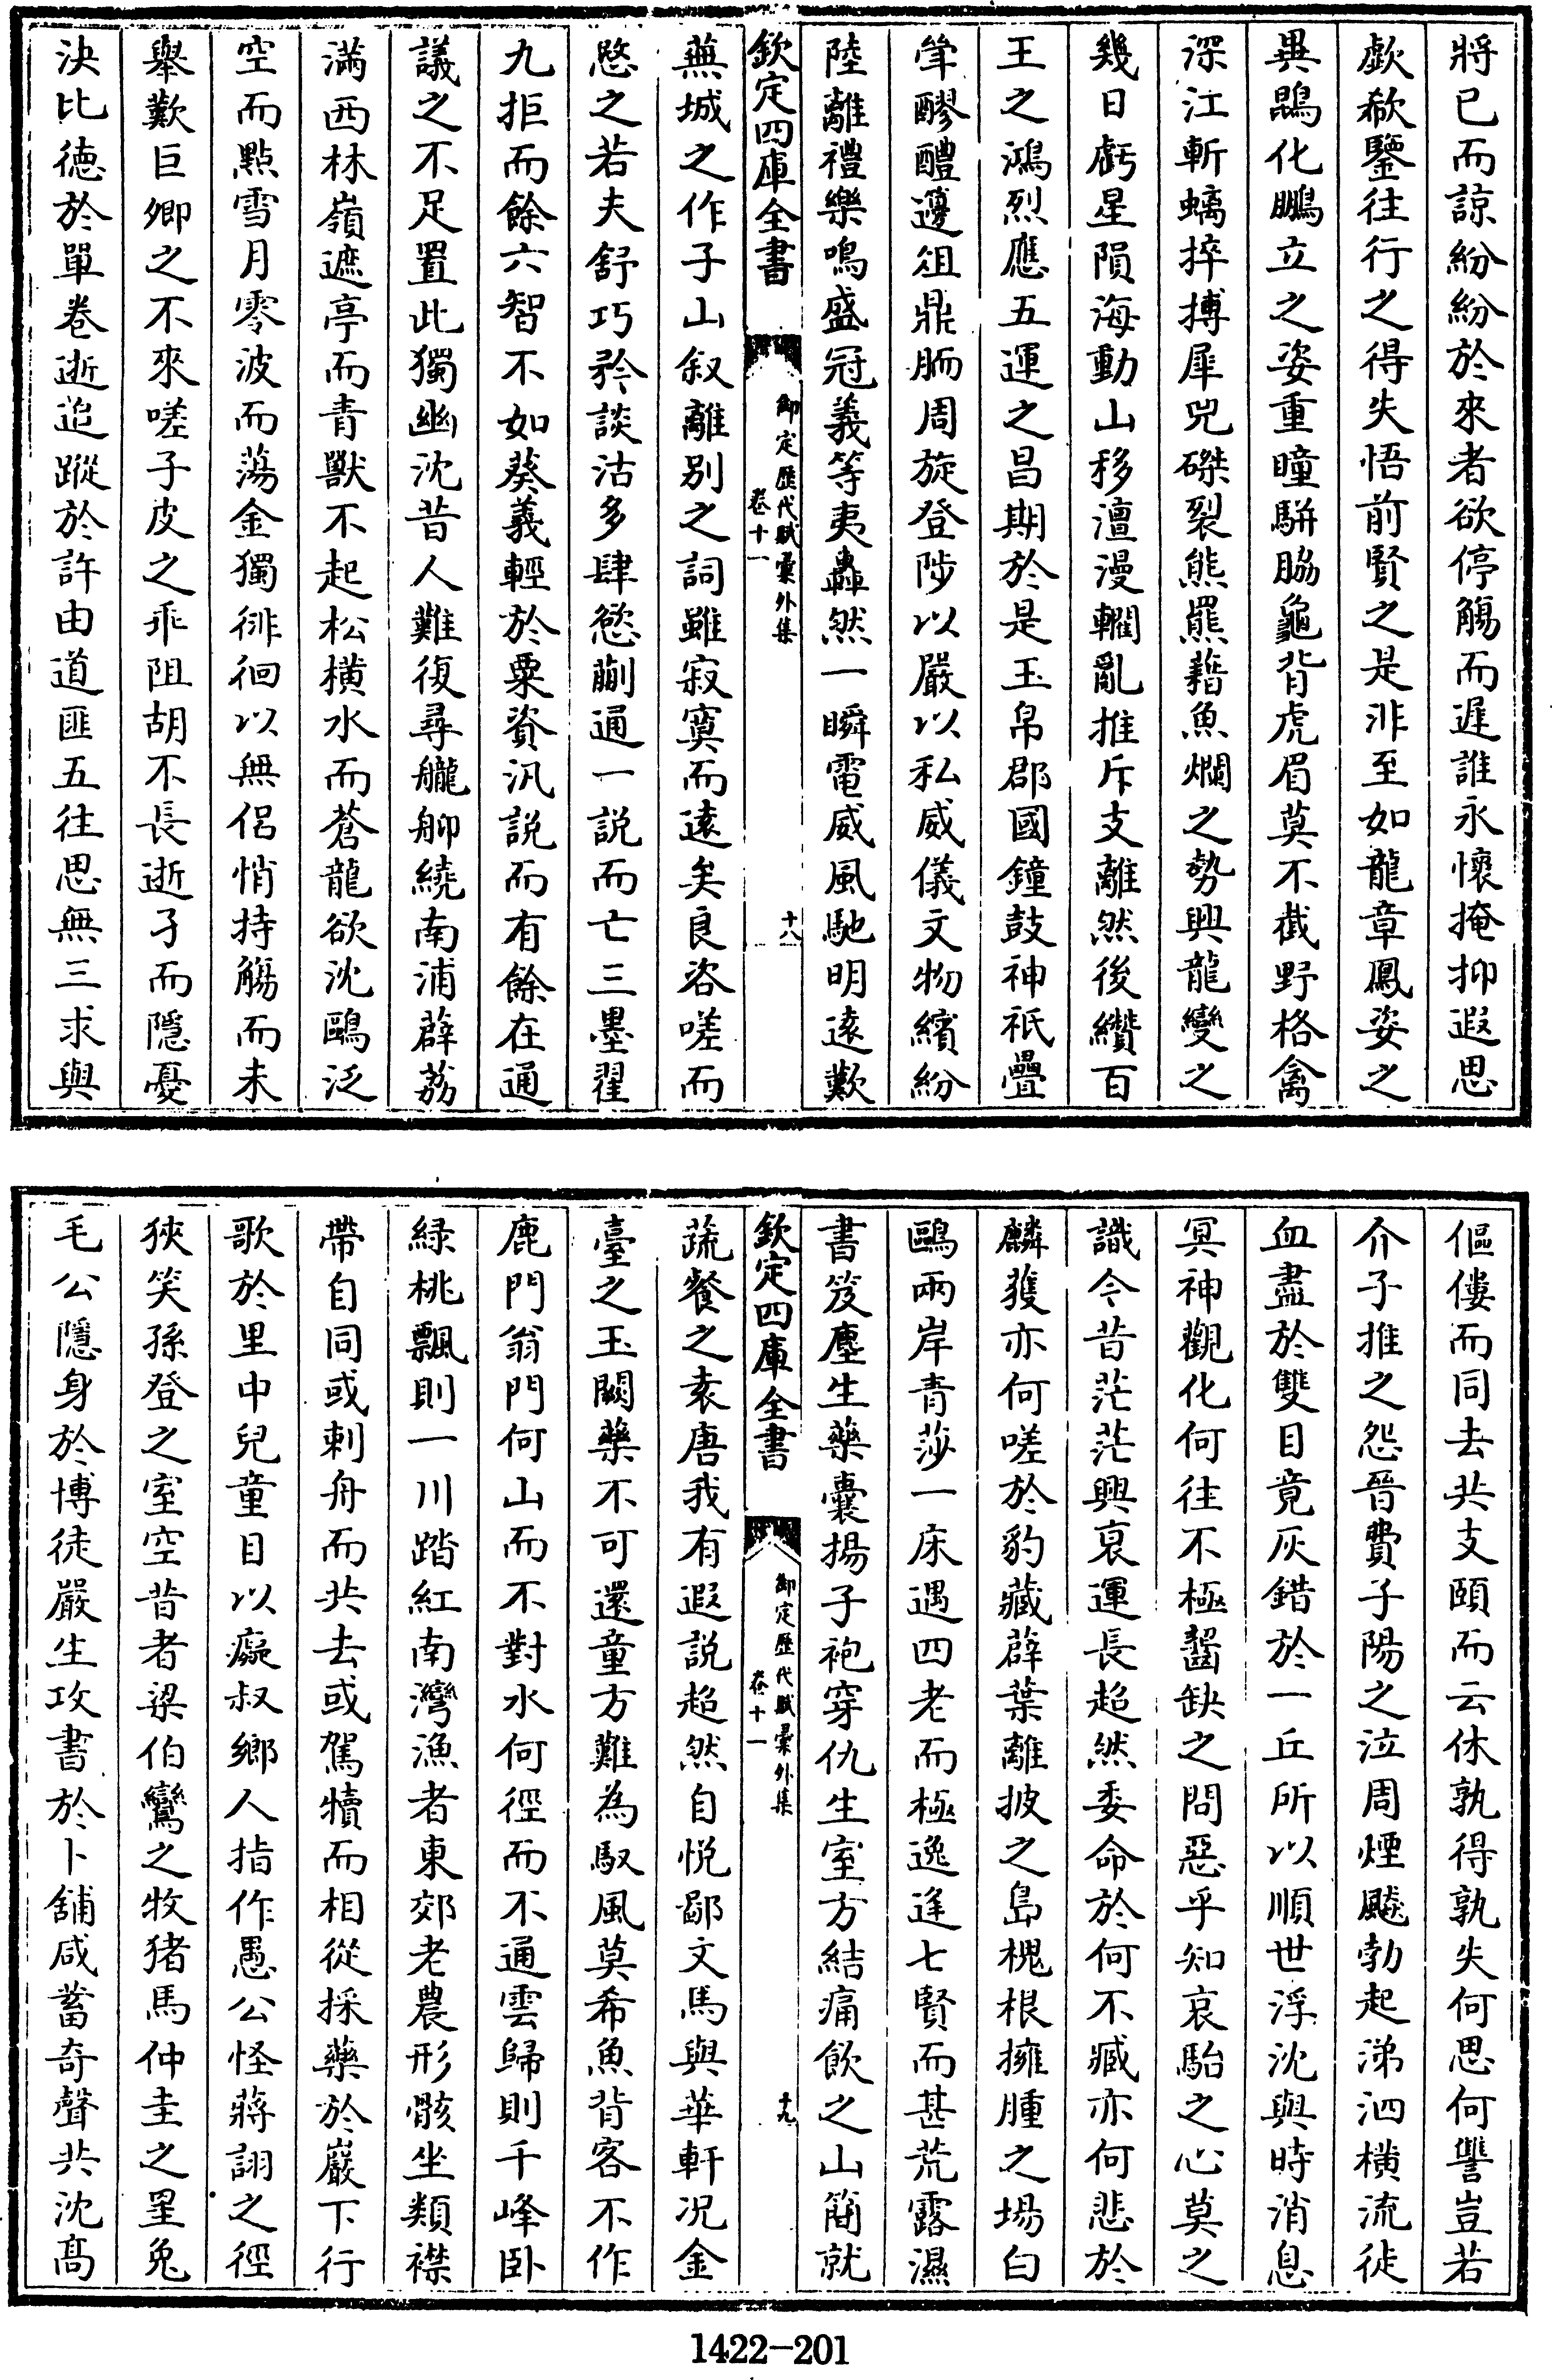 將已而諒紛紛於來者欲停觴而遲誰永懷掩抑遐思
歔欷鑒往行之得失悟前賢之是非至如龍章鳳姿之
異鵾化鵬立之姿重瞳駢脇龜背虎眉莫不截野格禽
深江斬螭捽搏犀兕磔裂熊羆藉魚爛之勢興龍變之
幾日虧星隕海動山移澶漫轇亂推斥支離然後纘百
王之鴻烈應五運之昌期於是玉帛郡國鐘鼓神祇疊
斝醪醴籩俎鼎胹周旋登陟以嚴以私威儀文物繽紛
陸離禮樂鳴盛冠義等夷轟然一瞬電威風馳明遠歎
欽定四庫全書
御定歷代賦彙外集
卷十一
十八
蕪城之作子山叙離別之詞雖寂寞而遠矣良咨嗟而
愍之若夫舒巧矜談沽多肆慾蒯通一説而亡三墨翟
九拒而餘六智不如葵義輕於粟資汎説而有餘在通
議之不足置此獨幽沈昔人難復尋艭舺繞南浦薜荔
滿西林嶺遮亭而青獸不起松橫水而蒼龍欲沈鷗泛
空而點雪月零波而蕩金獨徘徊以無侶悄持觴而未
舉歎巨卿之不來嗟子皮之乖阻胡不長逝孑而隱憂
決比德於單卷逝追蹤於許由道匪五往思無三求與
傴僂而同去共支頤而云休孰得孰失何思何讐豈若
介子推之怨晉費子陽之泣周煙飈勃起涕泗橫流徒
血盡於雙目竟灰錯於一丘所以順世浮沈與時消息
冥神觀化何往不極齧缺之問惡乎知哀駘之心莫之
識今昔茫茫興衰運長超然委命於何不臧亦何悲於
麟獲亦何嗟於豹藏薜葉離披之島槐根擁腫之場白
鷗兩岸青莎一床遇四老而極逸逢七賢而甚荒露濕
書笈塵生藥囊揚子袍穿仇生室方結痛飲之山簡就
欽定四庫全書
御定歷代賦彙外集
卷十一
十九
蔬餐之袁唐我有遐説超然自悦鄙文馬與華軒况金
臺之玉闕藥不可還童方難為馭風莫希魚背客不作
鹿門翁門何山而不對水何徑而不通雲歸則千峰卧
緑桃飄則一川踏紅南灣漁者東郊老農形骸坐類襟
帶自同或刺舟而共去或駕犢而相從採藥於巖下行
歌於里中兒童目以癡叔鄉人指作愚公怪蔣詡之徑
狹笑孫登之室空昔者梁伯鸞之牧猪馬仲圭之罣兔
毛公隱身於博徒嚴生攻書於卜舖咸蓄奇聲共沈高
1422-201